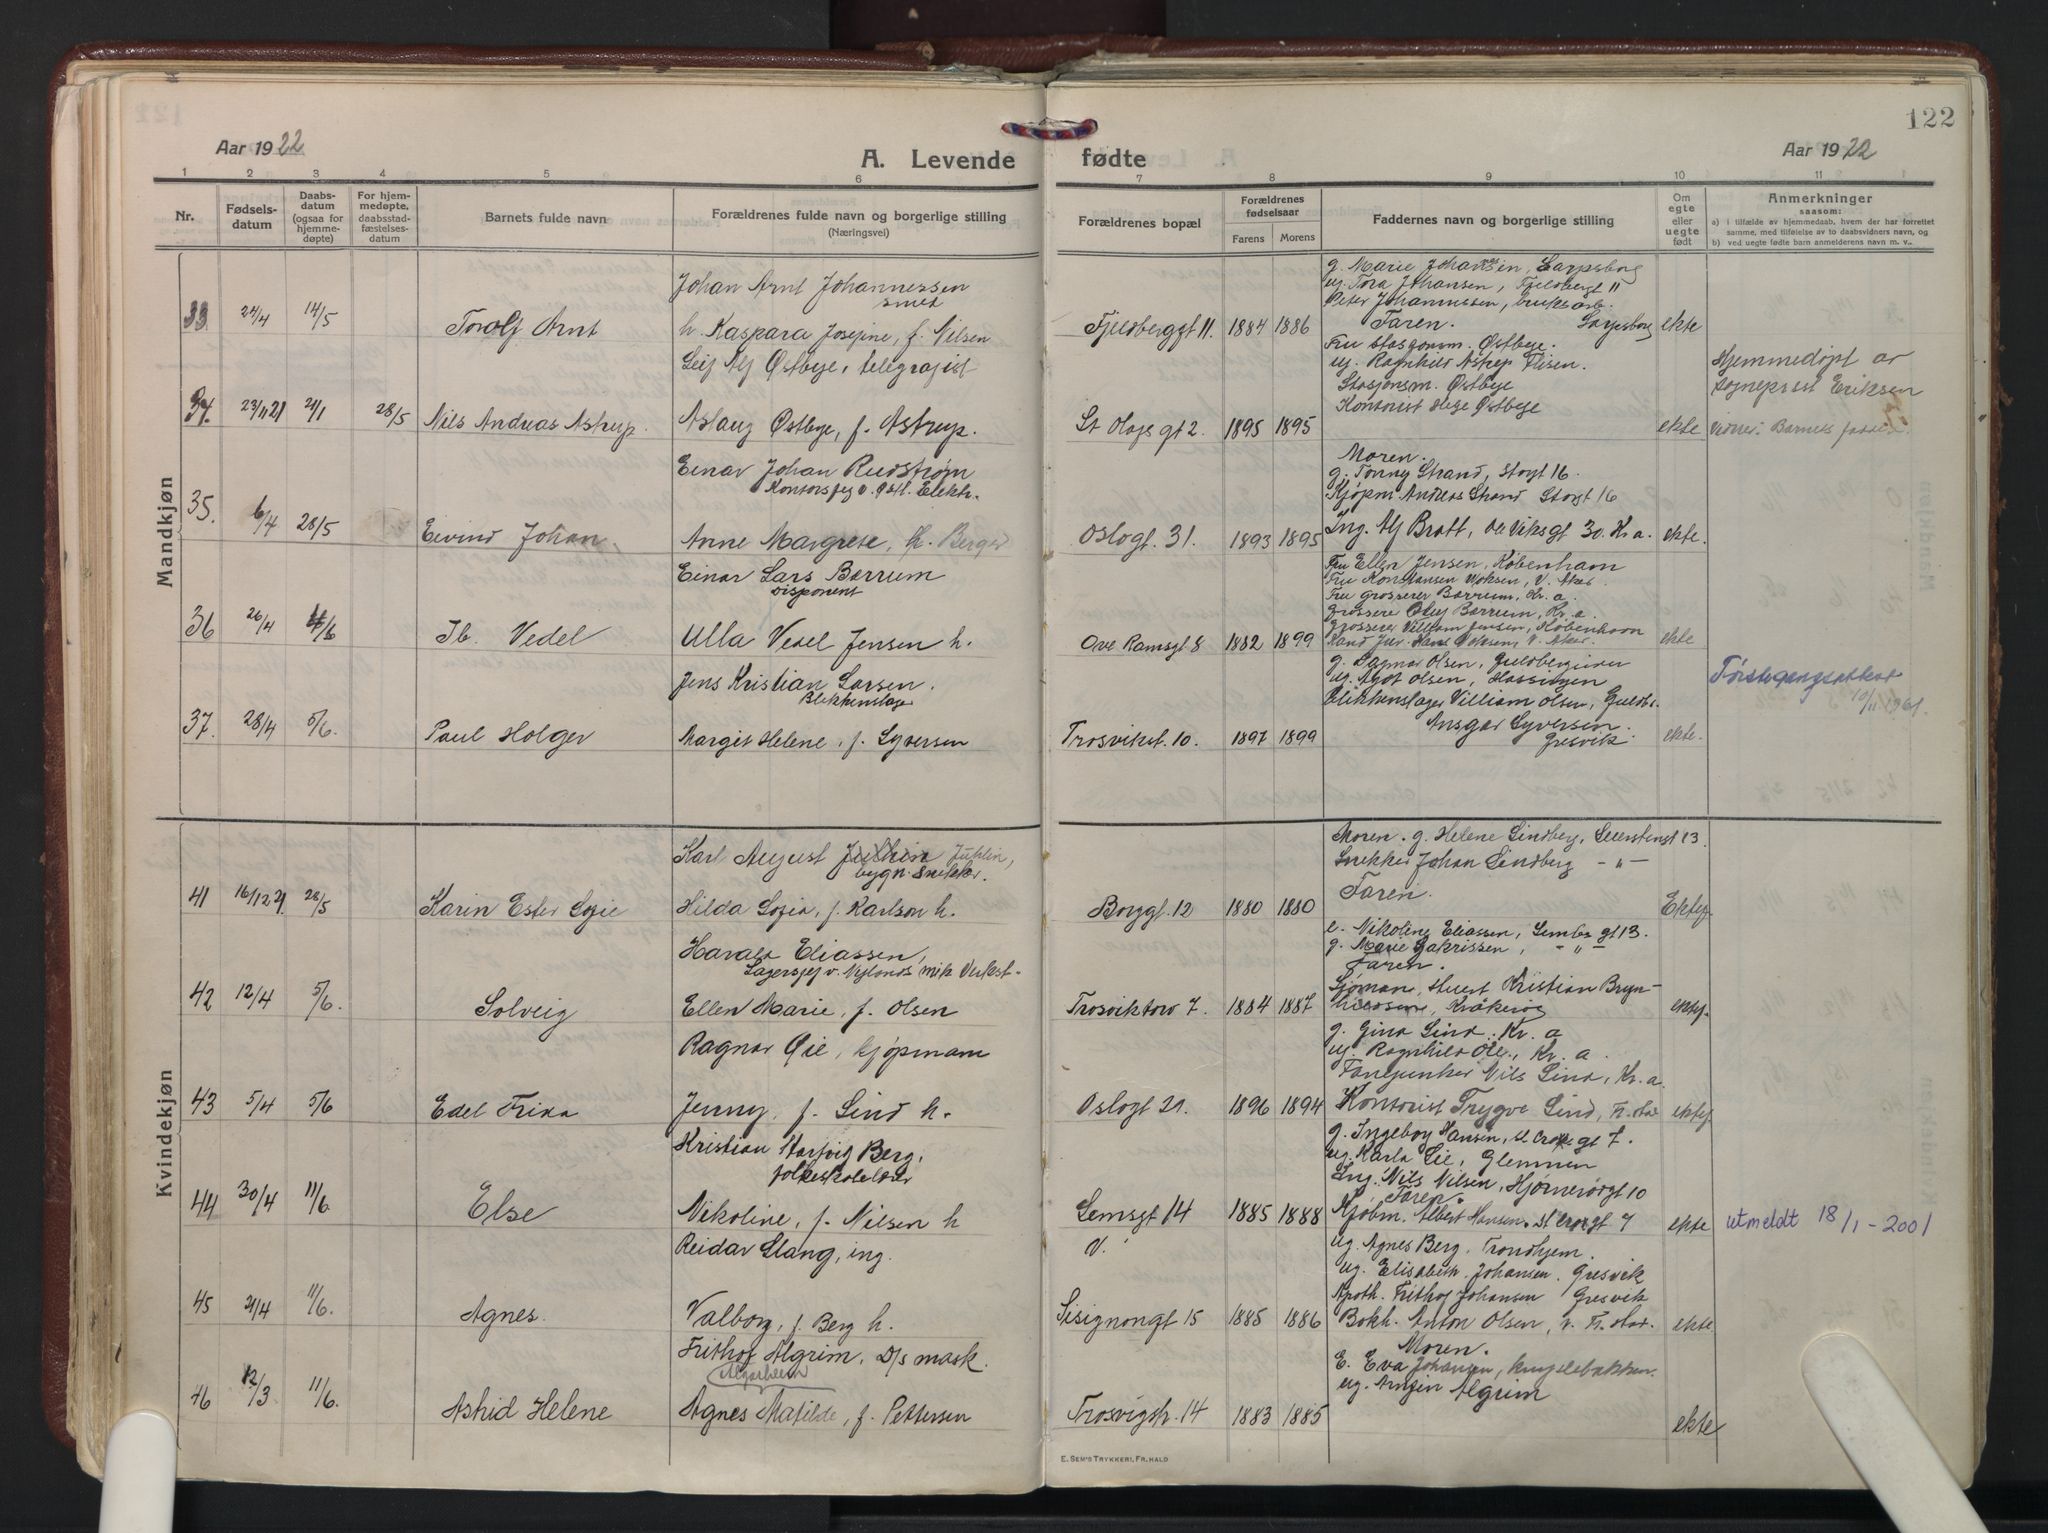 122
Aar 1922
A. Levende
fødte
Aar 1922
1 2 3 4 5 6 7 8 9 10 11
Nr.
Fødsels-
datum
Daabs-
datum
(ogsaa for
hjemme-
døpte)
For hjem-
medøpte,
daabsstad-
fæstelses-
datum
Barnets fulde navn
Forældrenes fulde navn og borgerlige stilling
(Næringsvei)
Forældrenes bopæl
Forældrenes
fødselsaar
Farens
Morens
Faddernes navn og borgerlige stilling
Om
egte
eller
uegte
født
Anmerkninger
saasom:
a) i tilfælde av hjemmedaab, hvem der har forrettet
samme, med tilføielse av to daabsvidners navn, og
b) ved uegte fødte barn anmelderens navn m. v.
Mandkjøn
33. 24/4 14/5 Torolf Arnt
Johan Arnt Johannessen
smed
h. Kaspara Josefine, f. Nilsen
Fjeldberggt 11. 1884 1886
g. Marie Johansen, Sarpsborg
ug. Tora Johansen, Fjeldbergt 11
Peter Johannessen, bruksarb.
Faren. Sarpsborg
ekte
34. 23/11 21 2/1 28/5 Nils Andreas Astrup.
Leif Alf Østbye, telegrafist
Aslaug Østbye, f. Astrup.
St Olafs gt 2. 1895 1895
Fru Stasjonsm. Østbye.
ug. Ragnhild Astrup
Stasjonsm. Østbye
Kontorist Østbye
ekte
Hjemmedøpt av
sogneprest Eriksen
Barnets
35. 6/4 28/5 Eivind Johan,
Einar Johan Rudstrøm
Anne Margrete, f. Berger
Oslogt. 31. 1893 1895
Moren.
g. Tonny Strand, Storgt 16.
Kjøpm Anders Strand Storgt 16
Ing. Alf Bratt, 30. Kr. a.
ekte.
36 26/4 4/6 Ib. Vedel
Einar Lars Børrum
disponent
Ulla Vedel Jensen h.
Ove Ramsgt 8 1882 1899
Fru Ellen Jensen, København
Fru grosserer Børrum, Kr. a.
Grossere Oluf Børrum, Kr. a.
Grosserer Villiam Jensen, København
ekte
37. 28/4 5/6. Paul Holger
Jens Kristian Larsen.
Blikkenslager
Margit Helene, f. Syversen
Trosvikst. 10. 1897 1899
g. Dagmar Olsen,
ug. Olsen,
Blikkenslager Villiam Olsen,
Ansgar Syversen
Gresvik.
ekte.
Førstegangsattest
10/11 1961.
Kvindekjøn
41 16/12 21. 28/5 Karin Ester Sofie
Karl August Juhlin,
bygn. snekker.
Hilda Sofia, f. Karlson h.
Borggt. 12 1880 1880
Moren. g. Helene Lindberg, 13
Snekker Johan Lindberg - " -
Faren.
42 12/4 5/6. Solveig
Harald Eliassen,
Lagersjef v. Nylands mek Verkst.
Ellen Marie, f. Olsen
Trosviktorv 7. 1884 1887
e. Nikoline Eliassen, gt 13.
g. Marie - " -
Faren.
Sjømann, Kristian Bryn-
Kråkerøy
43 5/4 5/6 Edel Frida
Ragnar Øie, kjøpmann
Jenny, f. Lind h.
Oslogt 21. 1896 1894
g. Gina Lind, Kr. a
ug. Ragnhild Øie, Kr. a.
Fanejunker Nils Lind, Kr. a
Kontorist Trygve Lind,
44 30/4 11/6. Else
Kristian Hartvig Berg,
folkeskolelærer
Nikoline, f. Nilsen h
Lemsgt 14
V.
1885 1888
g. Ingeborg Hansen, gt 7.
ug. Karla Lie, Glemmen
Ing. Nils Nilsen, 10
Faren.
Kjøbm. Albert Hansen, 7
ekte
utmeldt 18/1-2001
45 2/4 11/6. Agnes.
Reidar Stang, ing.
Valborg, f. Berg h.
Sisignongt 15 1885 1886
ug. Agnes Berg, Trondhjem.
ug. Elisabeth Johansen, Gresvik
Apoth. Frithof Johansen Gresvik
Bokh. Anton Olsen,
ekte
46 12/3 11/6. Astrid Helene
Frithof Algrim, D/s mask.
Agnes Matilde, f. Pettersen
Trosvigstr. 14 1883 1885
Moren.
E. Eva Johansen,
ug. Algrim
ekte
E. SEM'S TRYKKERI, FR.HALD